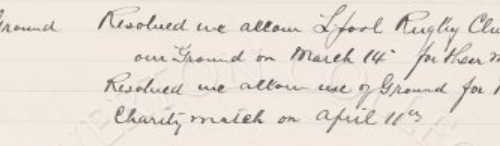 Ground Resolved we allow L'pool Rugby Clu
our Ground on March 14th for their m
Resolved we allow use of Ground for
Charity match on April 11th